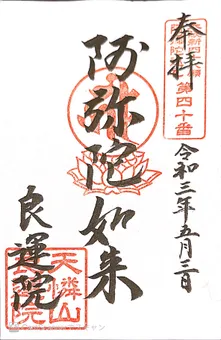 奉拝
第四十番
令和三年五月三日
阿弥陀如来
良運院
天潾山